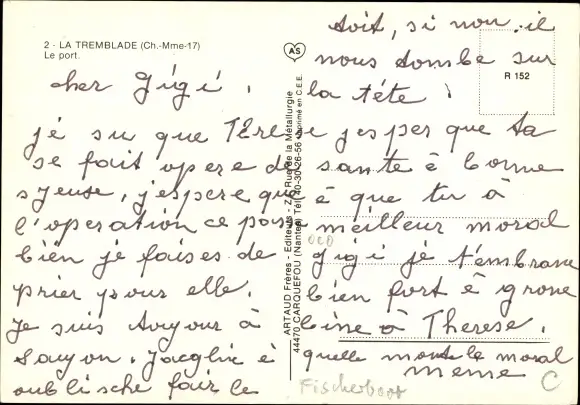 2 - LA TREMBLADE (Ch.-Mme-17)
Le port.
cher Gigi,
jé su que Térese
se fait opere de
syeuse, j'espere que
l'operation ce passe
bien je faises de
prier pour elle.
Je suis toujour à
Saujon. Jacqline è
oublische fair le
ARTAUD Frères - Editeurs - Z.I. Rue de la Métallurgie
44470 CARQUEFOU (Nantes) Tél. 40-30-26-56 Imprimé en C.E.E.
AS
R 152
toit, si non il
nous tombe sur
la téte !
jesper que ta
sante è bonne
è que tu à
meilleur moral
gigi jé t'embrane
bien fort è grone
bine à Therese.
quelle monte le moral
meme
Fischerboot
C